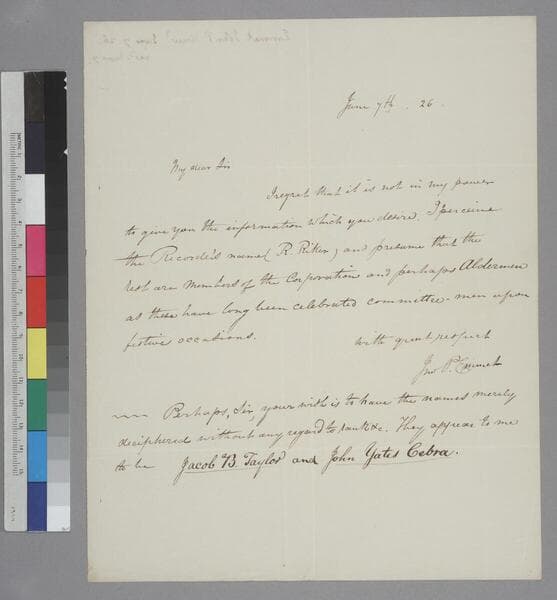 June 7th . 26.
My dear Sir
I regret that it is not in my power
to give you the information which you desire. I perceive
the Recorder's name (R. Riker) and presume that the
rest are Members of the Corporation and perhaps Aldermen
as these have long been celebrated committee-men upon
festive occasions.
With great respect
Jno P. Emmet
Perhaps, Sir, your wish is to have the names merely
deciphered without any regard to rank &c. They appear to me
to be Jacob B. Taylor and John Yates Cebra.